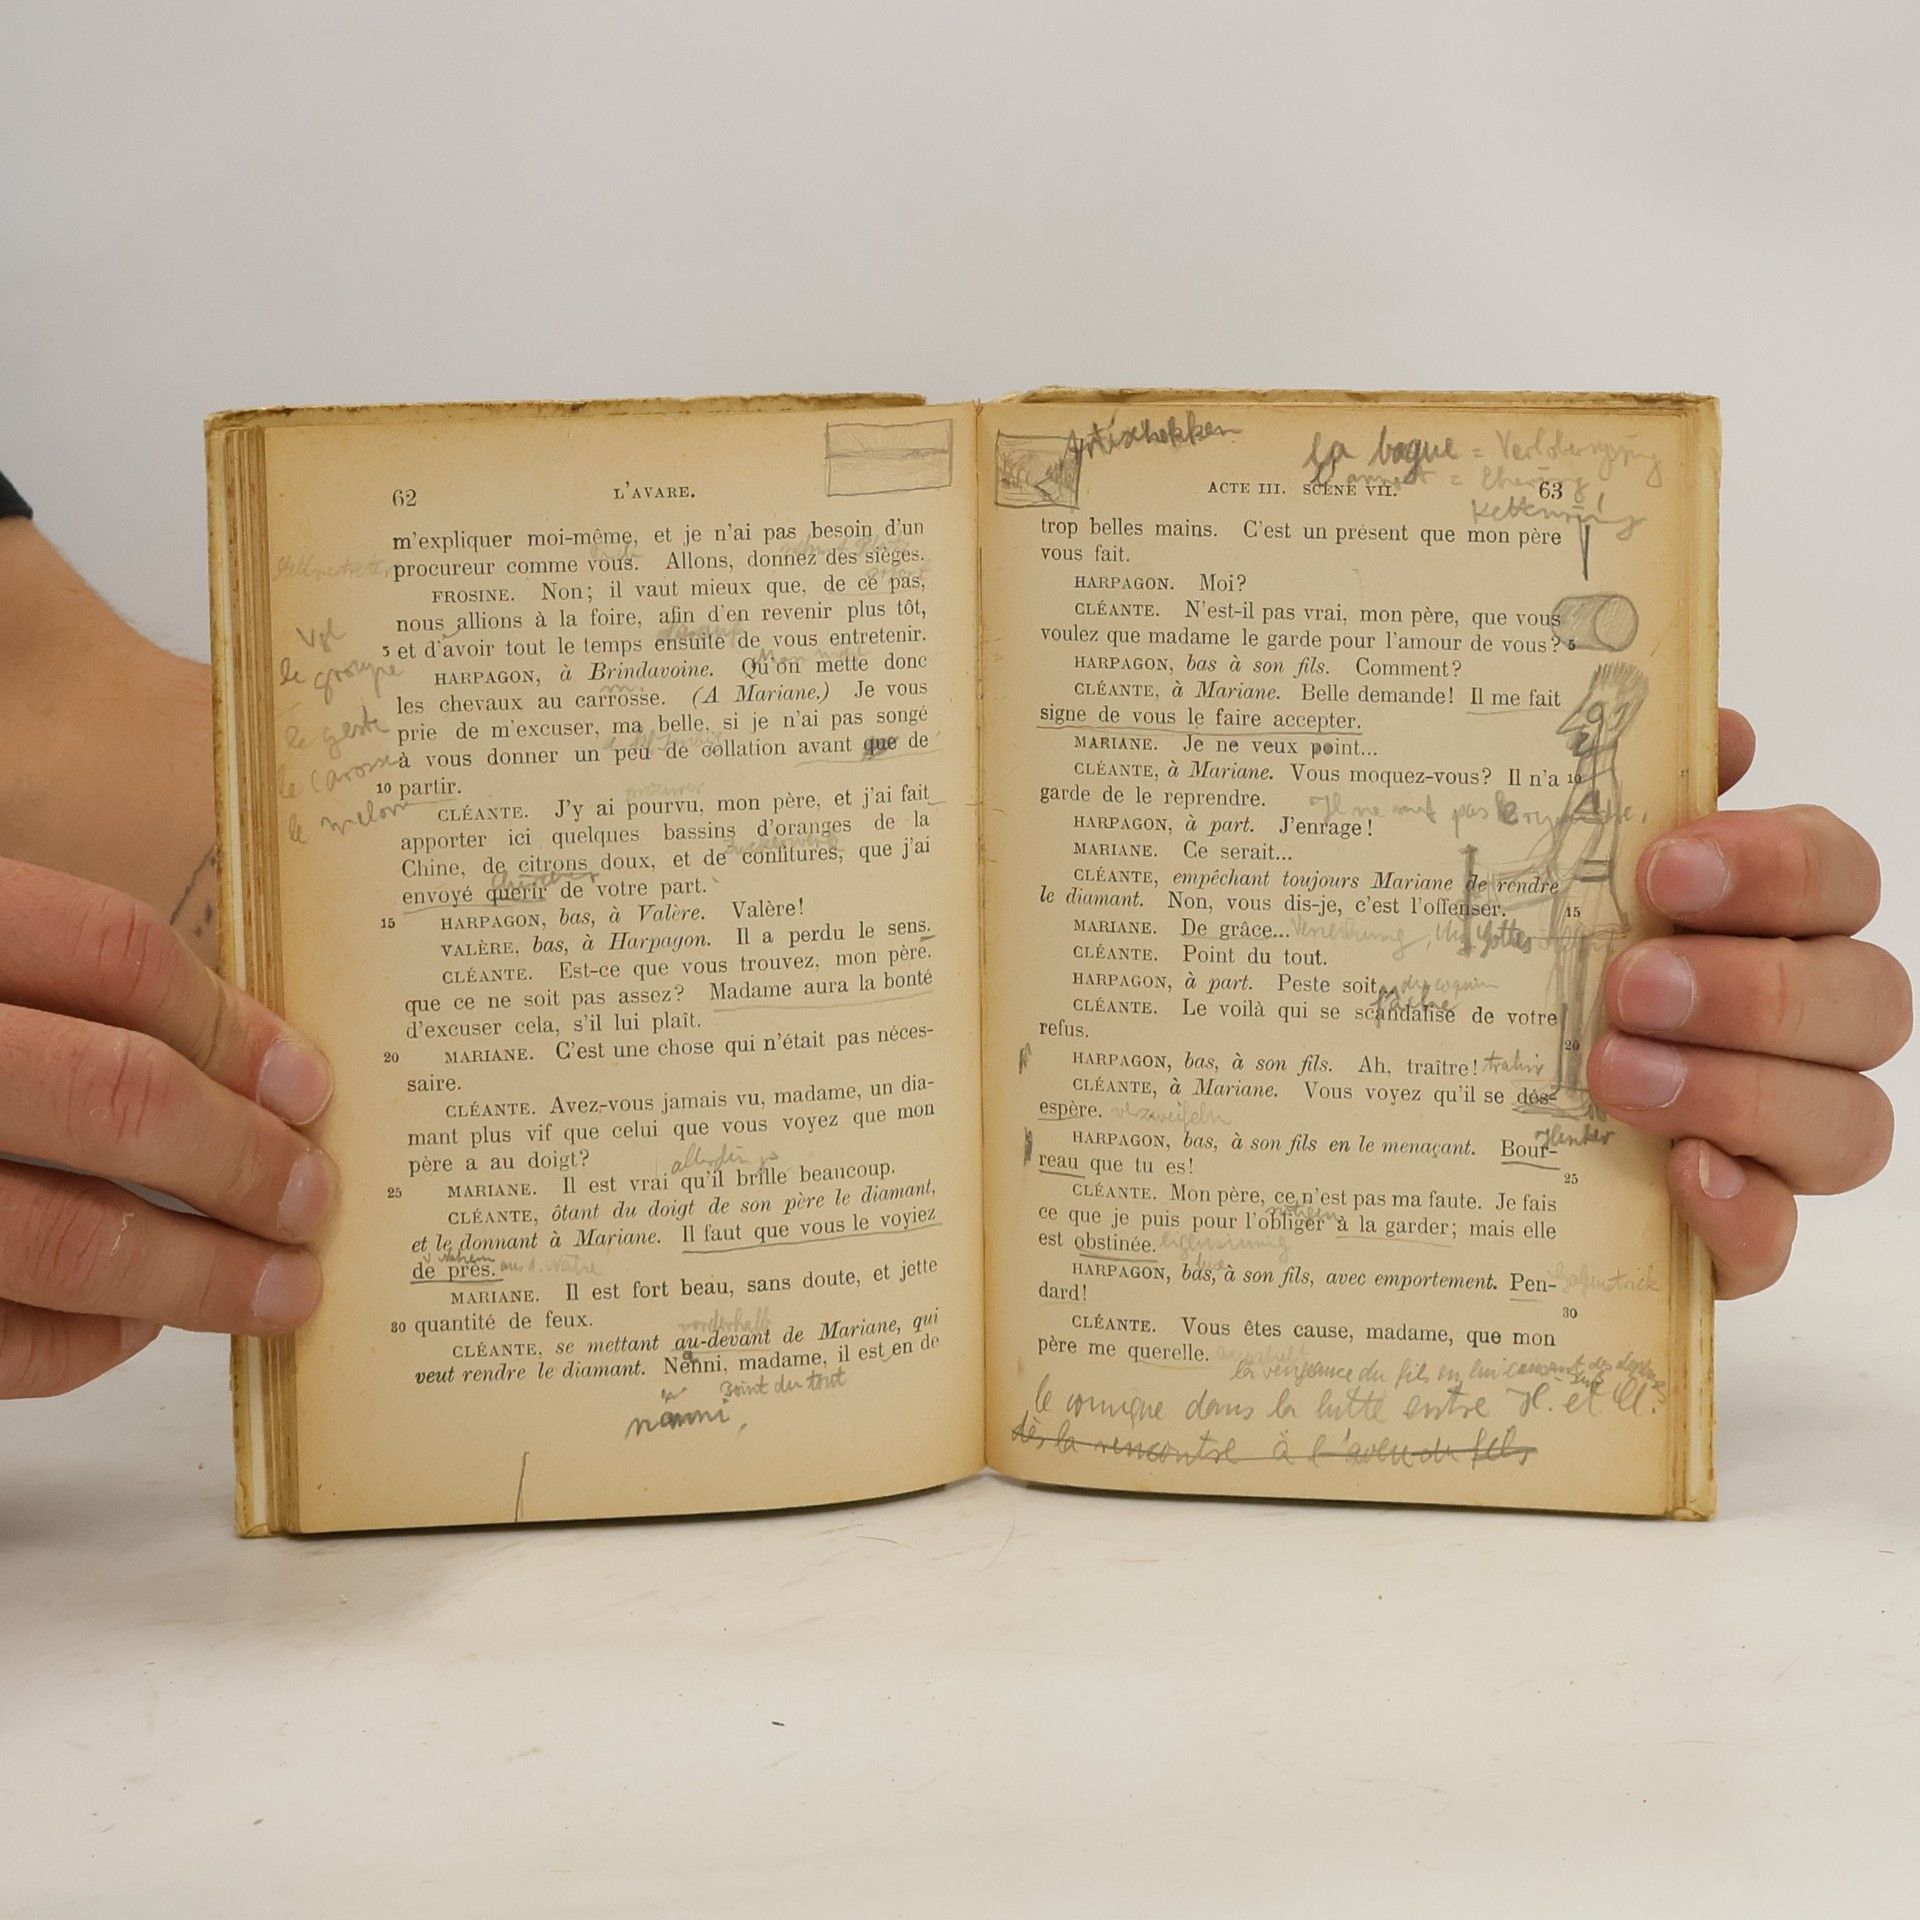 62
L'AVARE.
m'expliquer moi-même, et je n'ai pas besoin d'un
procureur comme vous. Allons, donnez des sièges.
FROSINE. Non; il vaut mieux que, de ce pas,
nous allions à la foire, afin d'en revenir plus tôt,
5 et d'avoir tout le temps ensuite de vous entretenir.
HARPAGON, à Brindavoine. Qu'on mette donc
les chevaux au carrosse. (A Mariane.) Je vous
prie de m'excuser, ma belle, si je n'ai pas songé
à vous donner un peu de collation avant que de
10 partir.
CLÉANTE. J'y ai pourvu, mon père, et j'ai fait
apporter ici quelques bassins d'oranges de la
Chine, de citrons doux, et de confitures, que j'ai
envoyé querir de votre part.
15 HARPAGON, bas, à Valère. Valère!
VALÈRE, bas, à Harpagon. Il a perdu le sens.
CLÉANTE. Est-ce que vous trouvez, mon père,
que ce ne soit pas assez? Madame aura la bonté
d'excuser cela, s'il lui plaît.
20 MARIANE. C'est une chose qui n'était pas néces-
saire.
CLÉANTE. Avez-vous jamais vu, madame, un dia-
mant plus vif que celui que vous voyez que mon
père a au doigt?
allerdings
25 MARIANE. Il est vrai qu'il brille beaucoup.
CLÉANTE, ôtant du doigt de son père le diamant,
et le donnant à Mariane. Il faut que vous le voyiez
de près.
MARIANE. Il est fort beau, sans doute, et jette
30 quantité de feux.
CLÉANTE, se mettant au-devant de Mariane, qui
veut rendre le diamant. Nenni, madame, il est en de
point du tout
nanni,
Vgl
le groupe
le geste
le carosse
le melon
Artischokken
la bague = Verlobungsring
= Ehering
Kettenring
ACTE III. SCÈNE VII.
63
trop belles mains. C'est un présent que mon père
vous fait.
HARPAGON. Moi?
CLÉANTE. N'est-il pas vrai, mon père, que vous
voulez que madame le garde pour l'amour de vous? 5
HARPAGON, bas à son fils. Comment?
CLÉANTE, à Mariane. Belle demande! Il me fait
signe de vous le faire accepter.
MARIANE. Je ne veux point...
CLÉANTE, à Mariane. Vous moquez-vous? Il n'a 10
garde de le reprendre.
HARPAGON, à part. J'enrage!
MARIANE. Ce serait...
CLÉANTE, empêchant toujours Mariane de rendre
le diamant. Non, vous dis-je, c'est l'offenser. 15
MARIANE. De grâce...
CLÉANTE. Point du tout.
HARPAGON, à part. Peste soit... du coquin
CLÉANTE. Le voilà qui se scandalise de votre
refus. 20
HARPAGON, bas, à son fils. Ah, traître! trahir
CLÉANTE, à Mariane. Vous voyez qu'il se dés-
espère. verzweifeln
Henker
HARPAGON, bas, à son fils en le menaçant. Bour-
reau que tu es! 25
CLÉANTE. Mon père, ce n'est pas ma faute. Je fais
ce que je puis pour l'obliger à la garder; mais elle
est obstinée.
HARPAGON, bas, à son fils, avec emportement. Pen-
dard! 30
CLÉANTE. Vous êtes cause, madame, que mon
père me querelle.
la vengeance du fils en lui
le comique dans la lutte entre H. et Cl.
dès la rencontre à l'aveu du fils